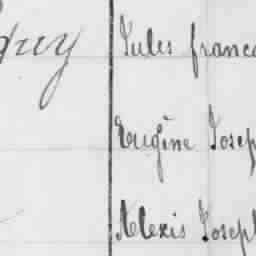 Jules franc
Eugène Josep
Alexis Joseph